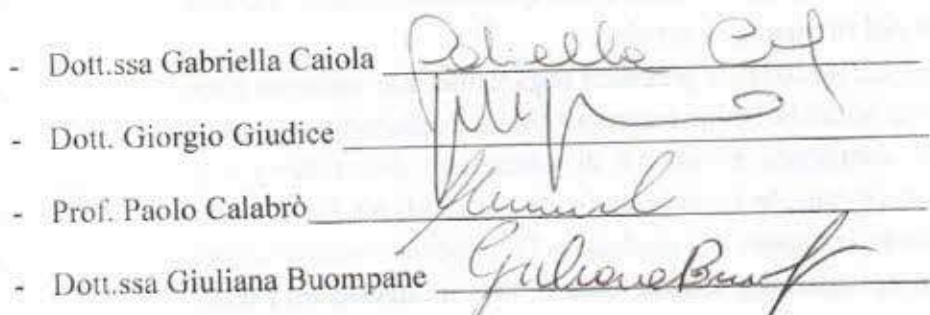 - Dott.ssa Gabriella Caiola Gabriella
- Dott. Giorgio Giudice
- Prof. Paolo Calabrò
- Dott.ssa Giuliana Buompane Giuliana